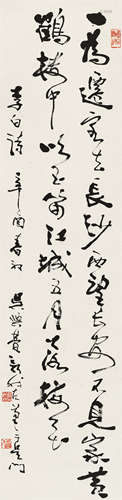 一為遷客去長沙西望長安不見家黃
鶴樓中吹玉笛江城五月落梅花
李白詩 辛酉春初 吳興費新我左筆吳門